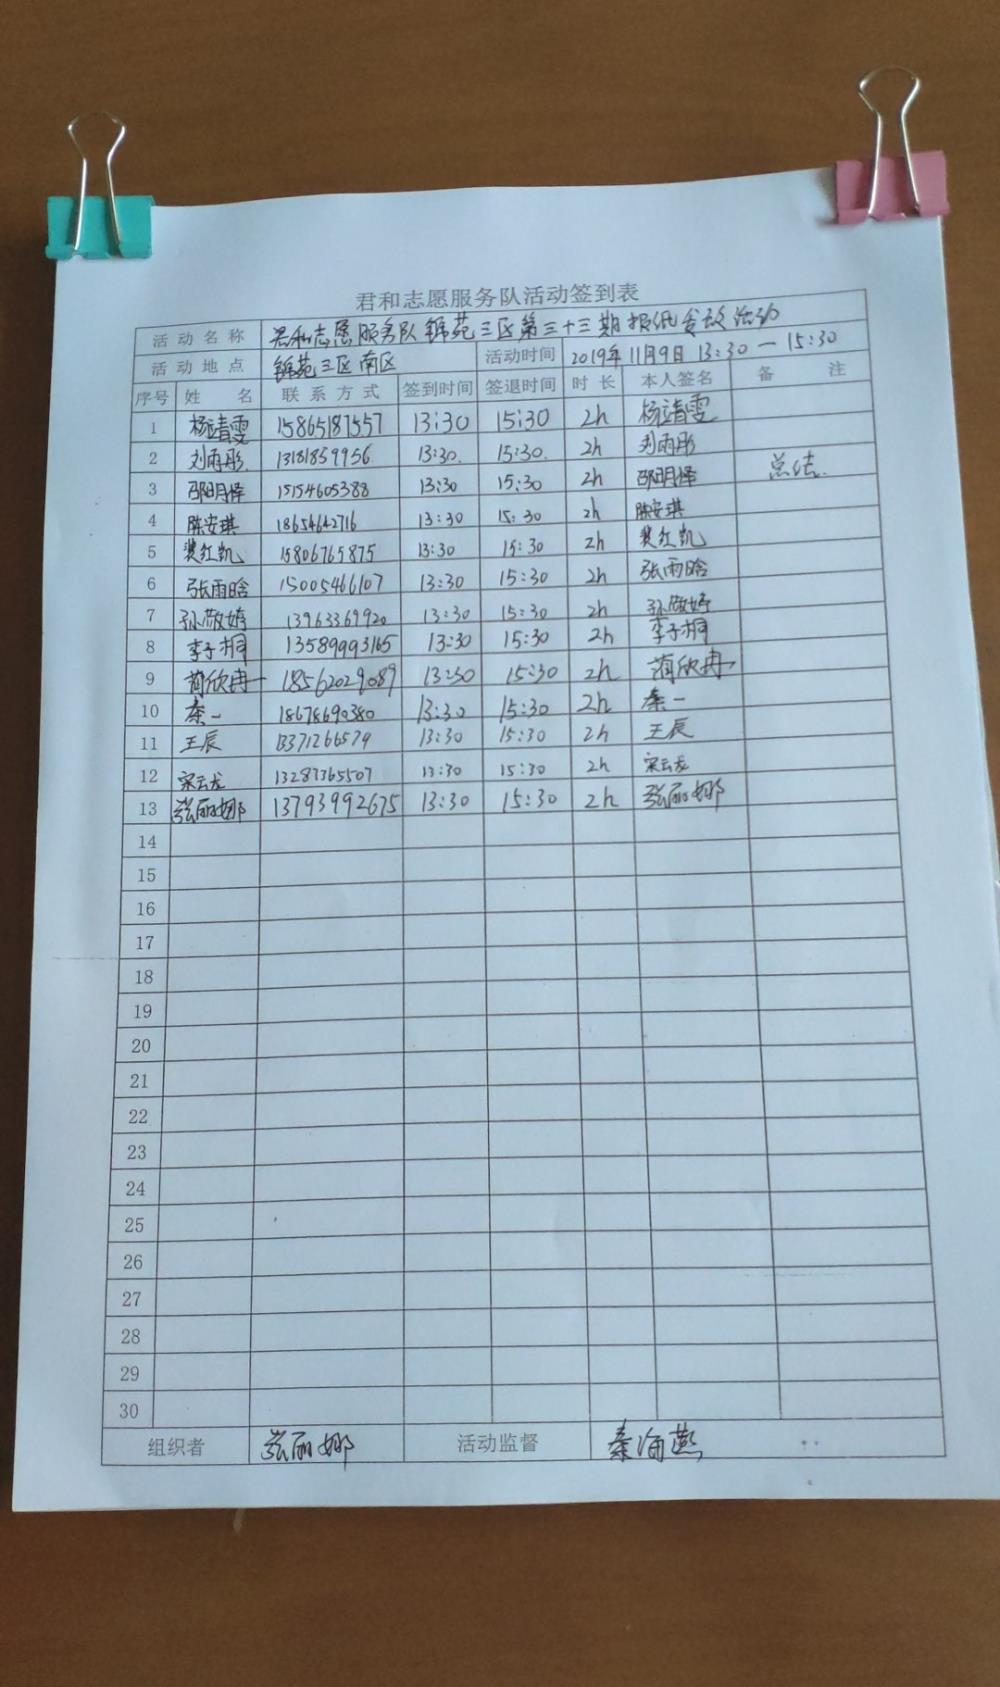 君和志愿服务队活动签到表
活动名称 君和志愿服务队锦苑三区第三十三期报纸发放活动
活动地点 锦苑三区南区 活动时间 2019年11月9日 13:30－15:30
序号 姓名 联系方式 签到时间 签退时间 时长 本人签名 备注
1 杨靖雯 15865187557 13:30 15:30 2h 杨靖雯
2 刘雨彤 13181859956 13:30. 15:30. 2h 刘雨彤
3 邵明怿 15154605388 13:30 15:30 2h 邵明怿 总结.
4 陈安琪 18654642716 13:30 15:30 2h 陈安琪
5 裴红凯 15806765875 13:30 15:30 2h 裴红凯
6 张雨晗 15005466107 13:30 15:30 2h 张雨晗
7 孙敬婷 13963369920 13:30 15:30 2h 孙敬婷
8 李子桐 13589993165 13:30 15:30 2h 李子桐
9 蔺欣冉 18562029089 13:30 15:30 2h 蔺欣冉
10 秦一 18678690380 13:30 15:30 2h 秦一
11 王辰 13371266579 13:30 15:30 2h 王辰
12 宋云龙 13287365507 13:30 15:30 2h 宋云龙
13 张丽娜 13793992675 13:30 15:30 2h 张丽娜
14
15
16
17
18
19
20
21
22
23
24
25
26
27
28
29
30
组织者 张丽娜 活动监督 秦海燕